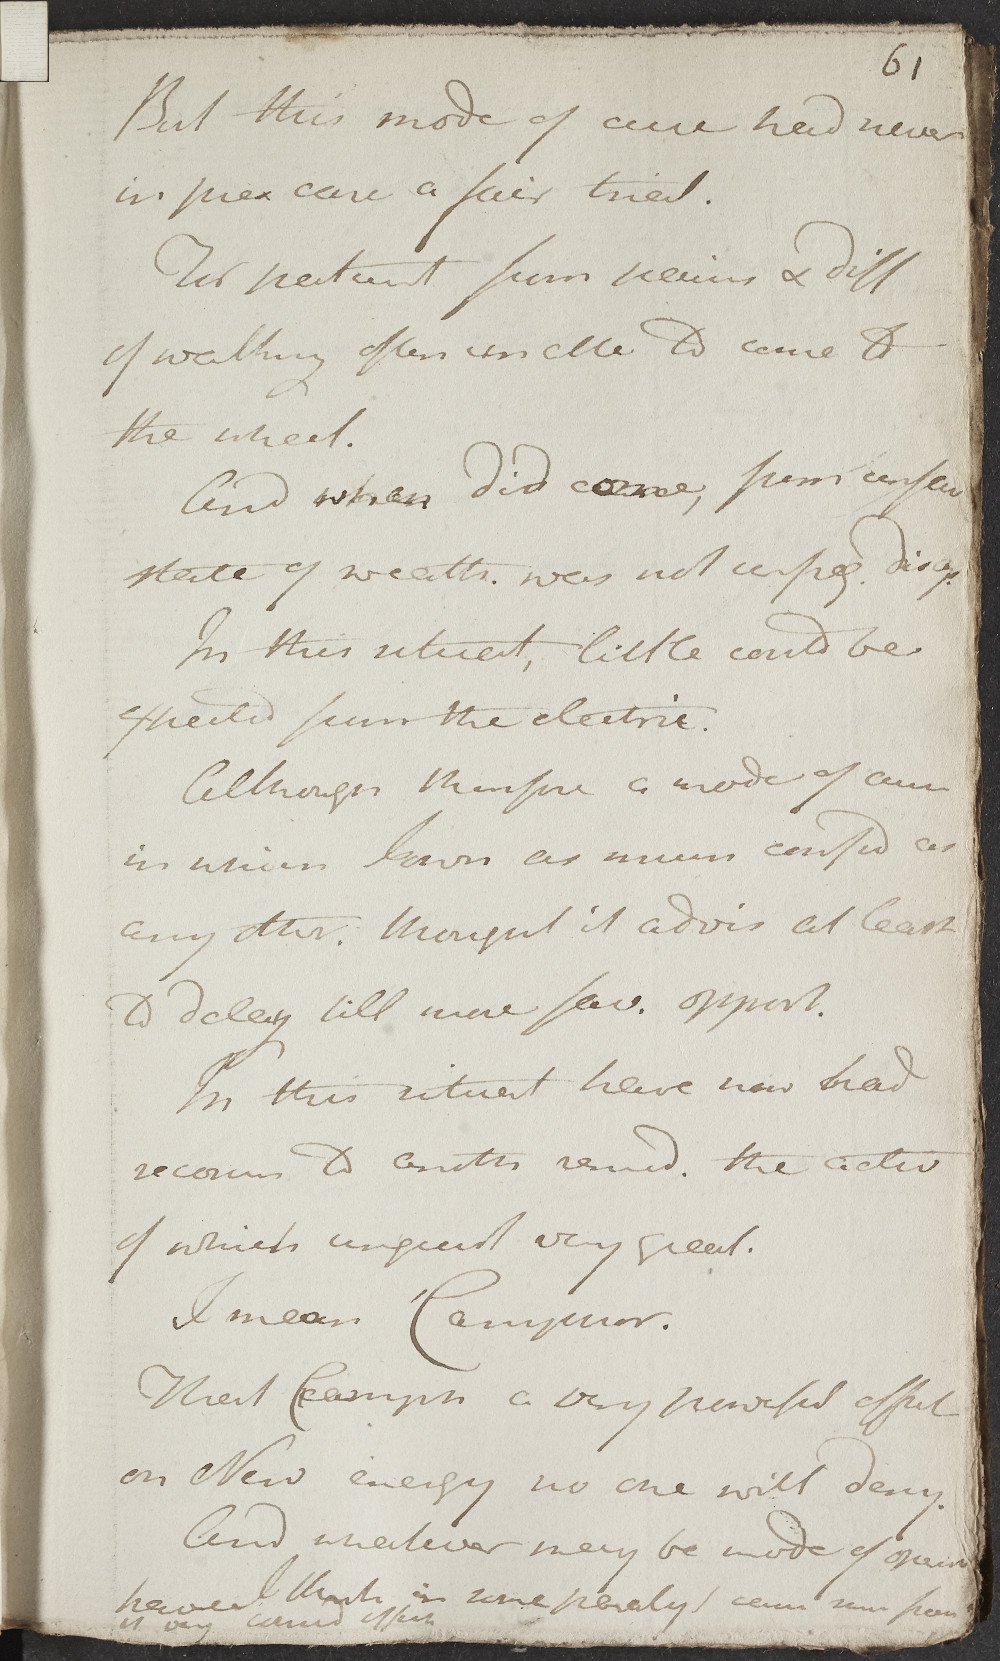 61
But this mode of cure had never
in pres case a fair tried.
For patient from pains & diff
of walking often unable to come to
the wheel.
And when did come, from unfav
state of weath. was not unfreq. disap.
In this situat, little could be
expected from the electric.
Although therefore a mode of cure
in which I own as much confid as
any other. thought it advis at least
to delay till more fav. opport.
In this situat have now had
recours to anoth remed. the activ
of which unquest very great.
I mean Camphor.
That Camph a very powerful effect
on Nerv energy no one will deny.
And whatever may be mode of operat
have I think in some paralyt cases seen from
it very considd effects